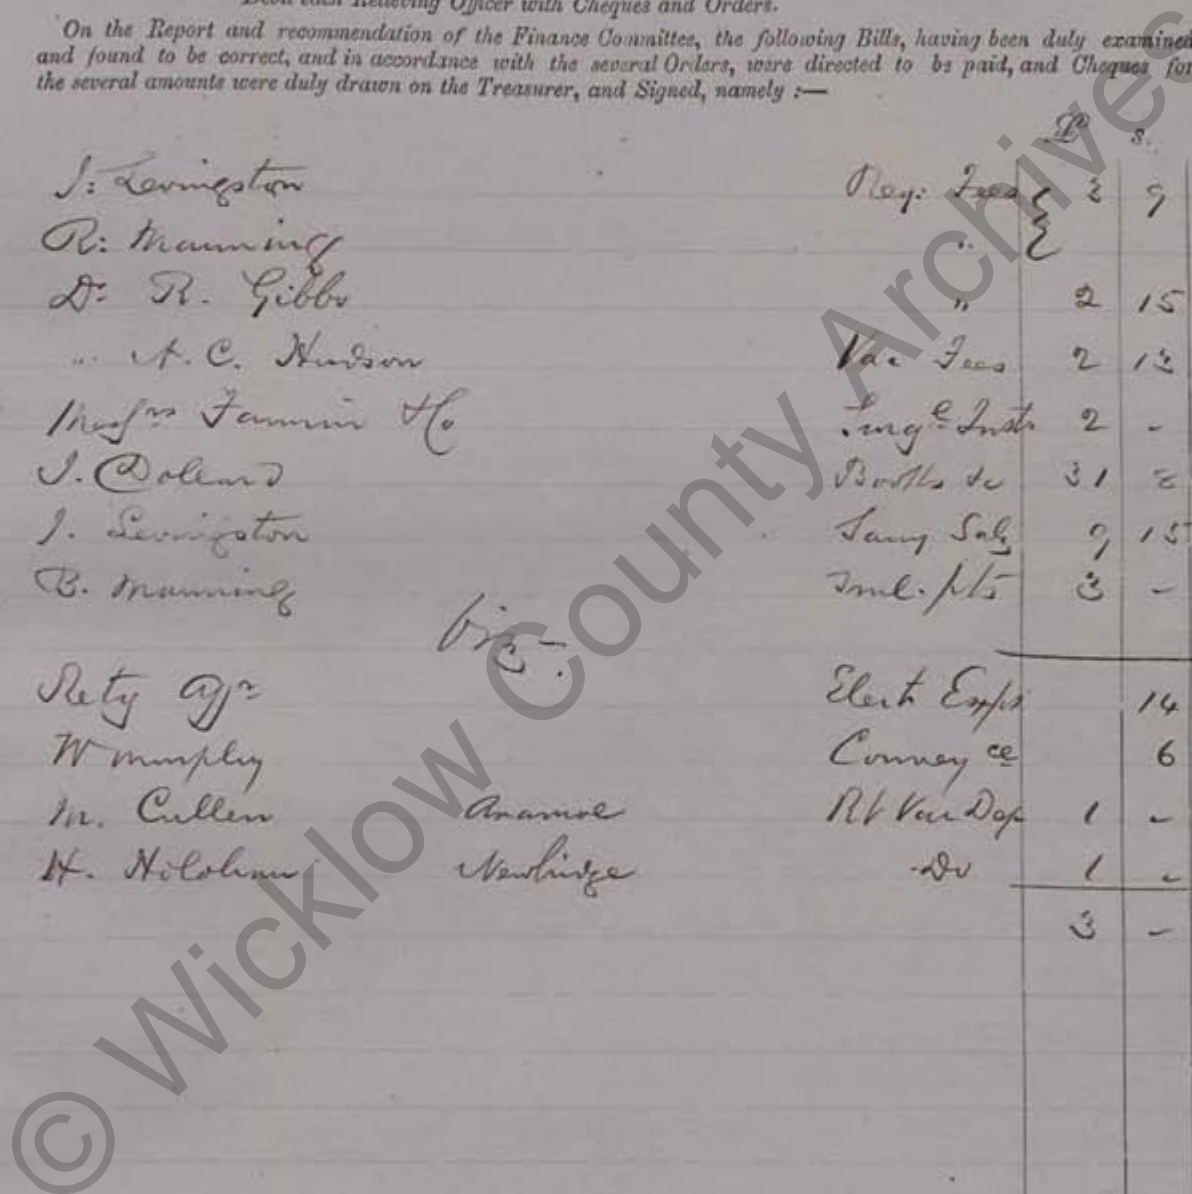 Relieving Officer with Cheques and Orders.
On the Report and recommendation of the Finance Committee, the following Bills, having been duly examined
and found to be correct, and in accordance with the several Orders, were directed to be paid, and Cheques for
the several amounts were duly drawn on the Treasurer, and Signed, namely :—
£ s.
J: Levingston Reg: Fees 3 9
R: Manning "
Dr R. Gibbs " 2 15
" A. C. Hudson Vac Fees 2 13
Messrs Fannin & Co Surge Insts 2 -
J. Doland Books &c 31
J. Levingston Sany Saly 9 15
B. Manning 3 -
viz-:
Rety Offr Elect Exps 14
W Murphy Convey ce 6
M. Cullen Anamoe Rt Vac Dep 1 -
H. Newbridge Do 1 -
3 -
© Wicklow County Archives